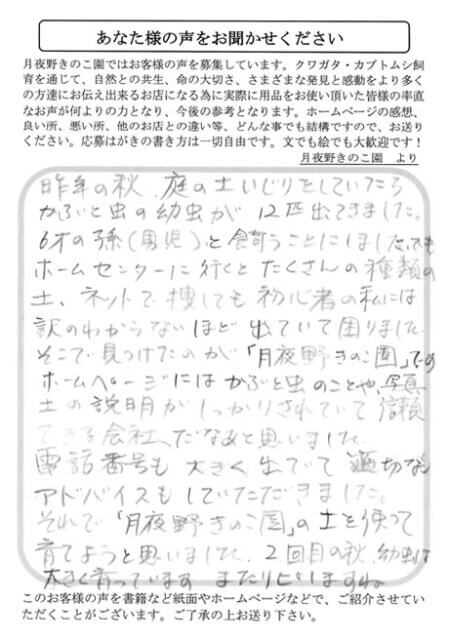 あなた様の声をお聞かせください
月夜野きのこ園ではお客様の声を募集しています。クワガタ・カブトムシ飼
育を通じて、自然との共生、命の大切さ、さまざまな発見と感動をより多く
の方達にお伝え出来るお店になる為に実際に用品をお使い頂いた皆様の率直
なお声が何よりの力となり、今後の参考となります。ホームページの感想、
良い所、悪い所、他のお店との違い等、どんな事でも結構ですので、お送り
ください。応募はがきの書き方は一切自由です。文でも絵でも大歓迎です！
月夜野きのこ園　より
昨年の秋、庭の土いじりをしていたら
かぶと虫の幼虫が 12匹出てきました。
6才の孫(男児)と飼うことにしました。でも
ホームセンターに行くとたくさんの種類の
土、ネットで捜しても初心者の私には
訳のわからないほど出ていて困りました
そこで見つけたのが「月夜野きのこ園」です
ホームページにはかぶと虫のことや、写真
土の説明がしっかりされていて信頼
できる会社だなあと思いました
電話番号も大きく出でて適切な
アドバイスもしていただきました。
それで「月夜野きのこ園」の土を使って
育てようと思いました。2回目の秋、幼虫は
大きく育っています
このお客様の声を書籍など紙面やホームページなどで、ご紹介させてい
ただくことがございます。ご了承の上お送り下さい。